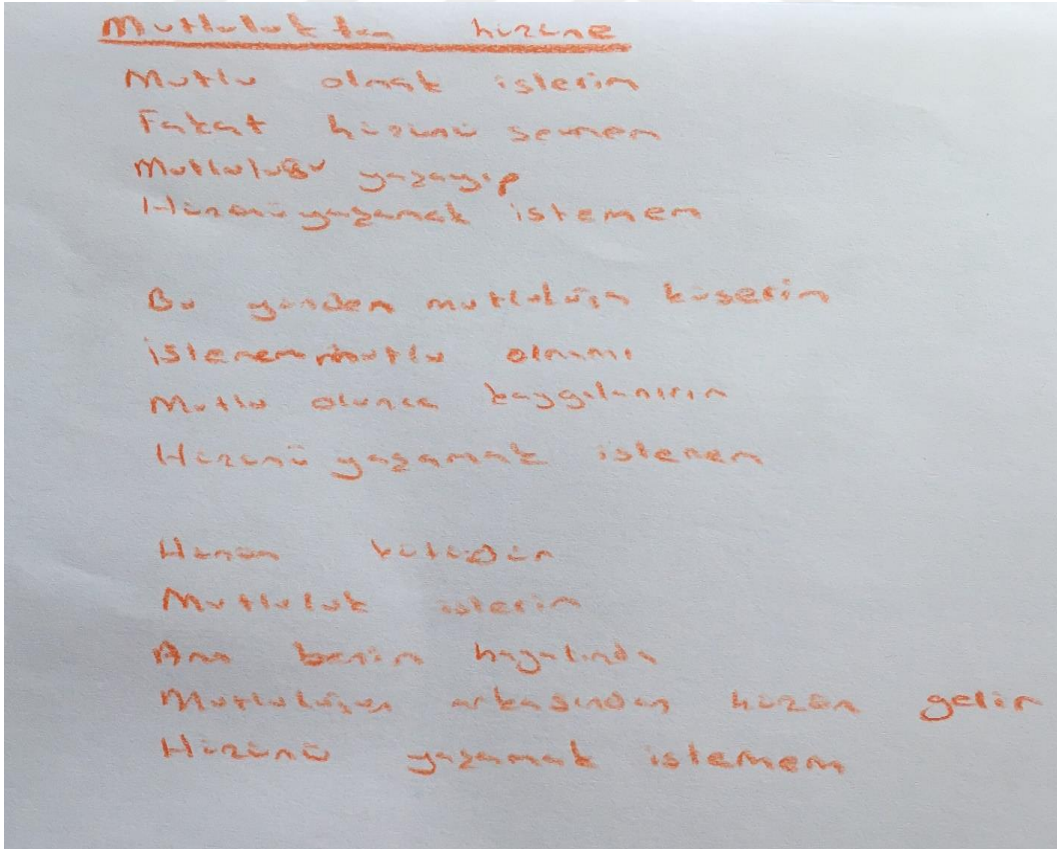 Mutluluktan hüzüne
Mutlu olmak isterim
Fakat hüzünü sevmem
Mutluluğu yaşayıp
Hüzünü yaşamak istemem
Bu yüzden mutluluğa küserim
istemem mutlu
Mutlu olunca kaygılanırım
Hüzünü yaşamak istemem
Hüzün
Mutluluk isterim
Ama benim hayatımda
Mutluluğun arkasından hüzün gelir
Hüzünü yaşamak istemem